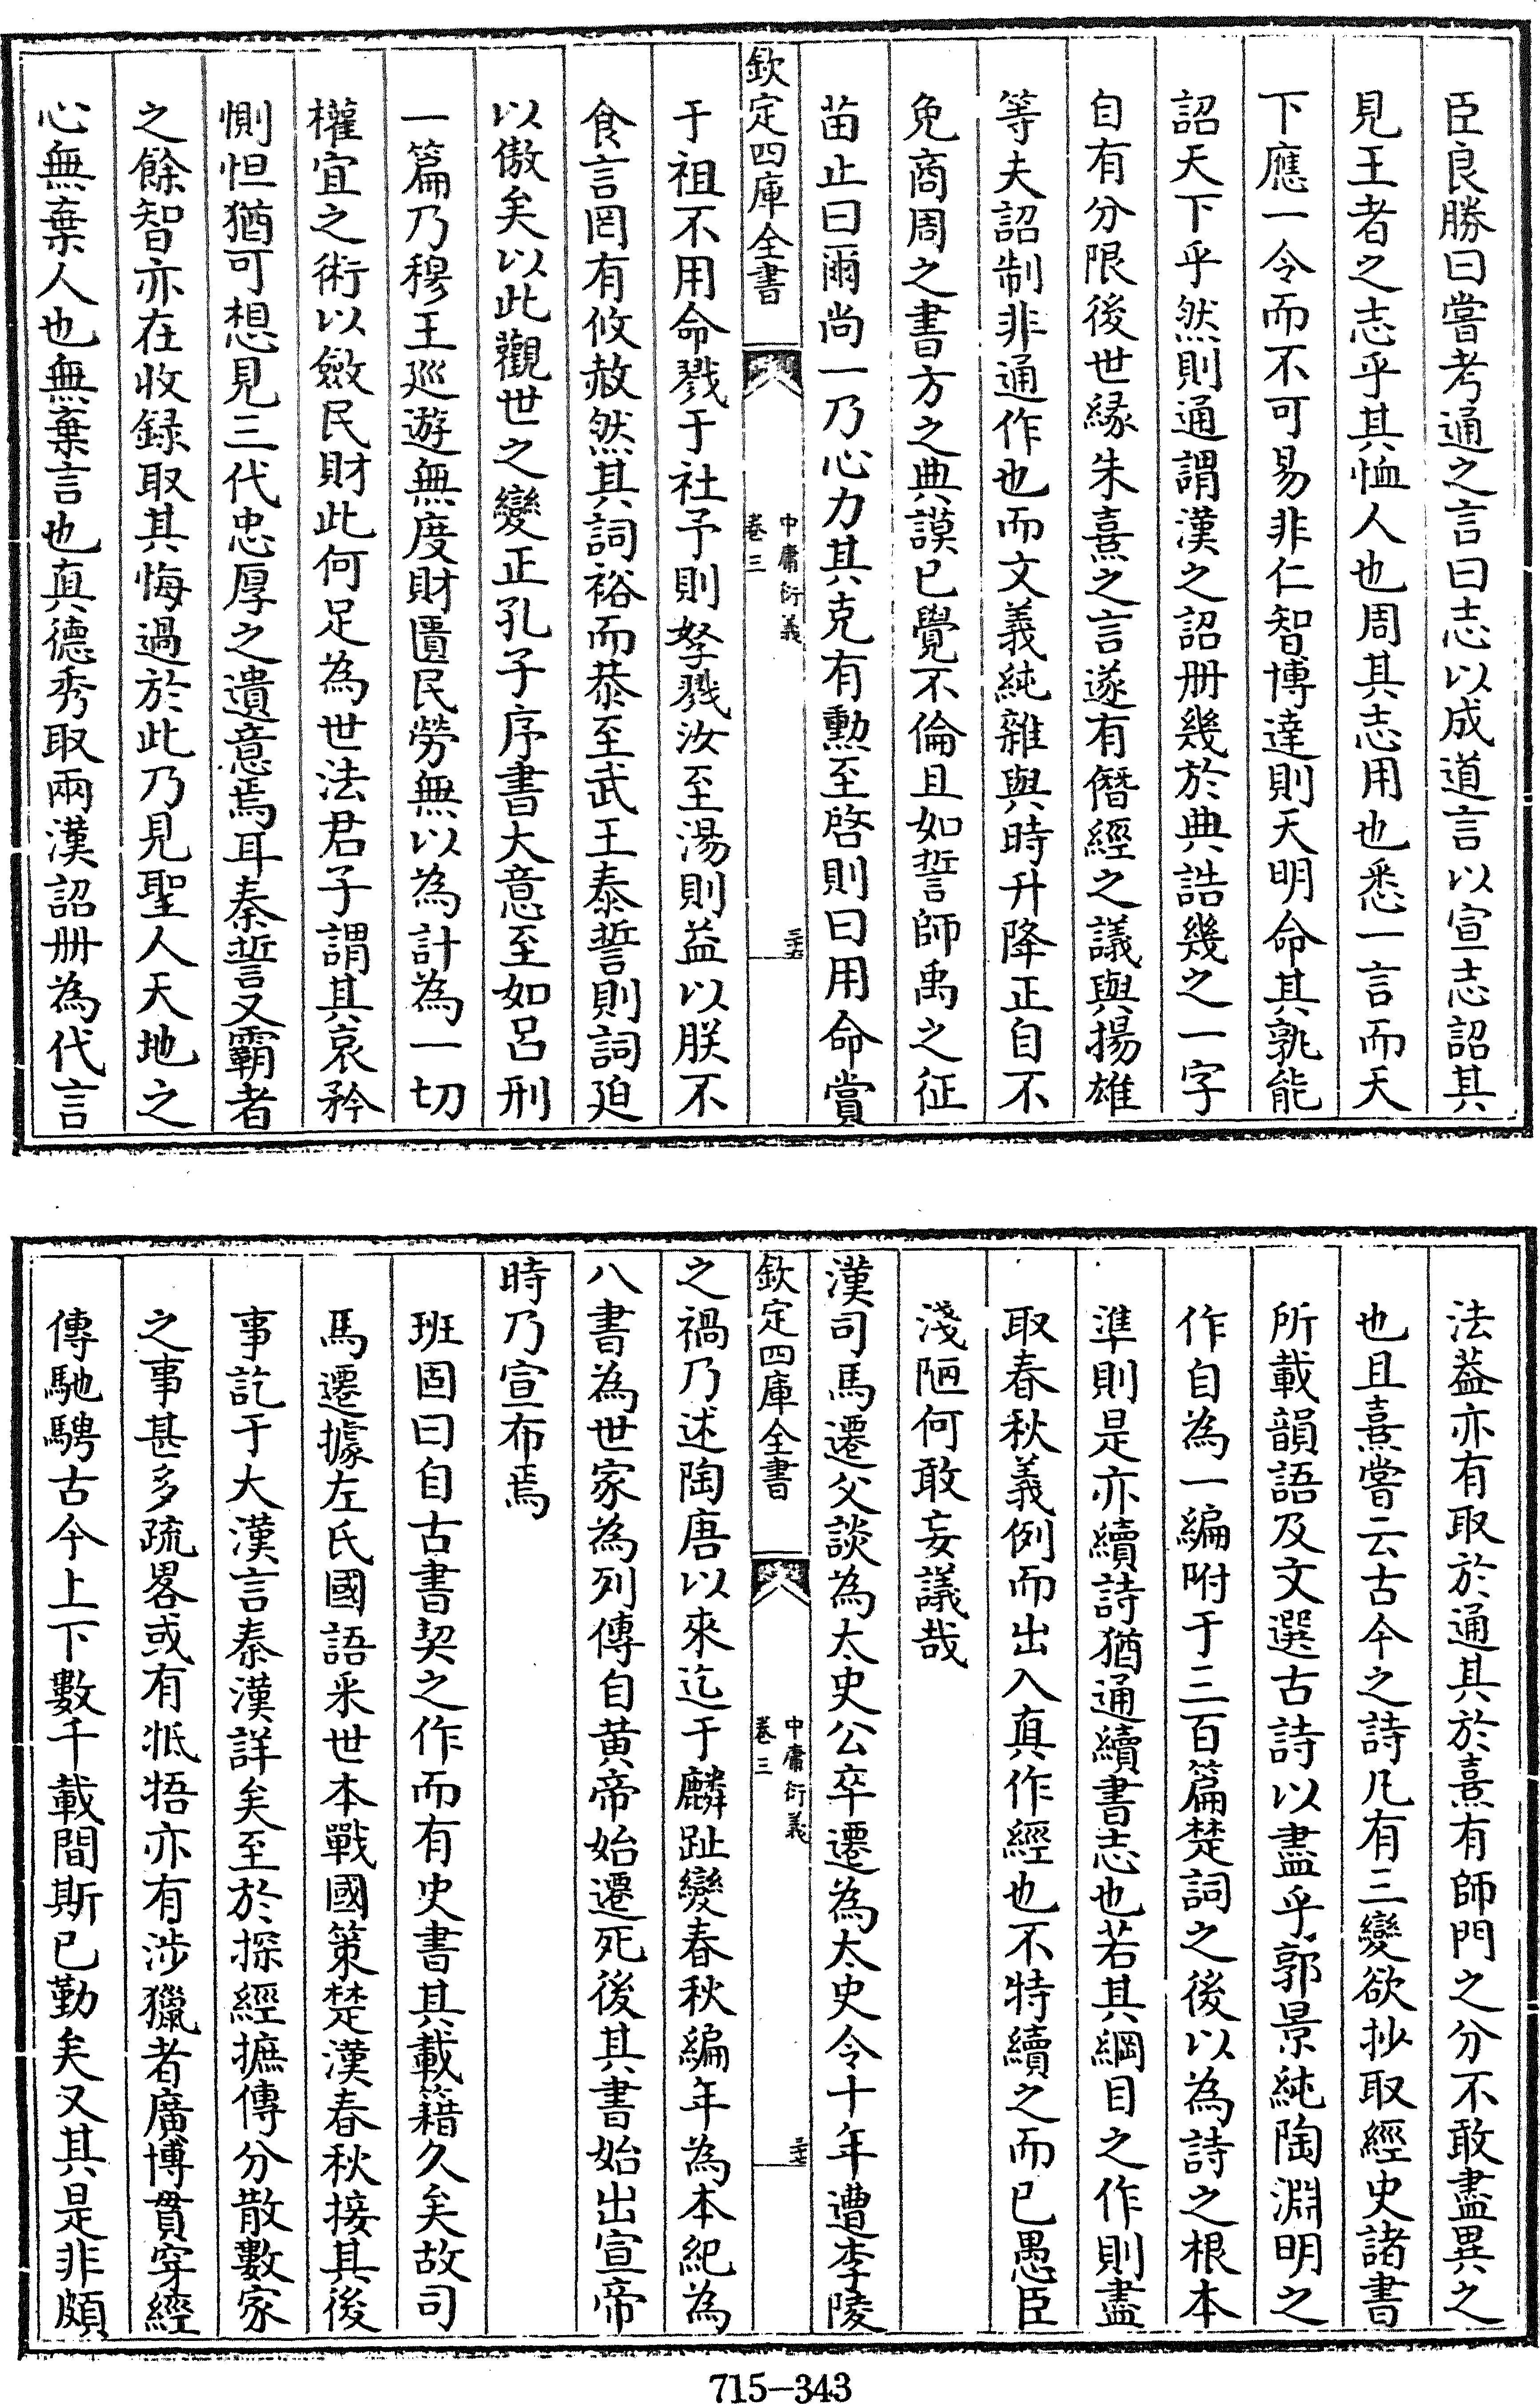 臣良勝曰嘗考通之言曰志以成道言以宣志詔其
見王者之志乎其恤人也周其志用也悉一言而天
下應一令而不可易非仁智博達則天明命其孰能
詔天下乎然則通謂漢之詔册幾於典誥幾之一字
自有分限後世緣朱熹之言遂有僭經之議與揚雄
等夫詔制非通作也而文義純雜與時升降正自不
免商周之書方之典謨已覺不倫且如誓師禹之征
苗止曰爾尚一乃心力其克有勲至啓則曰用命賞
欽定四庫全書
中庸衍義
卷三
三六
于祖不用命戮于社予則孥戮汝至湯則益以朕不
食言罔有攸赦然其詞裕而恭至武王泰誓則詞廹
以傲矣以此觀世之變正孔子序書大意至如呂刑
一篇乃穆王廵遊無度財匱民勞無以為計為一切
權宜之術以斂民財此何足為世法君子謂其哀矜
惻怛猶可想見三代忠厚之遺意焉耳秦誓又霸者
之餘智亦在收録取其悔過於此乃見聖人天地之
心無棄人也無棄言也真德秀取兩漢詔册為代言
法葢亦有取於通其於熹有師門之分不敢盡異之
也且熹嘗云古今之詩凡有三變欲抄取經史諸書
所載韻語及文選古詩以盡乎郭景純陶淵明之
作自為一編附于三百篇楚詞之後以為詩之根本
準則是亦續詩猶通續書志也若其綱目之作則盡
取春秋義例而出入真作經也不特續之而已愚臣
淺陋何敢妄議哉
漢司馬遷父談為太史公卒遷為太史令十年遭李陵
欽定四庫全書
中庸衍義
卷三
三七
之禍乃述陶唐以來迄于麟趾變春秋編年為本紀為
八書為世家為列傳自黄帝始遷死後其書始出宣帝
時乃宣布焉
班固曰自古書契之作而有史書其載籍久矣故司
馬遷據左氏國語采世本戰國策楚漢春秋接其後
事訖于大漢言秦漢詳矣至於採經摭傳分散數家
之事甚多疏畧或有牴牾亦有涉獵者廣博貫穿經
傳馳騁古今上下數千載間斯已勤矣又其是非頗
715-343